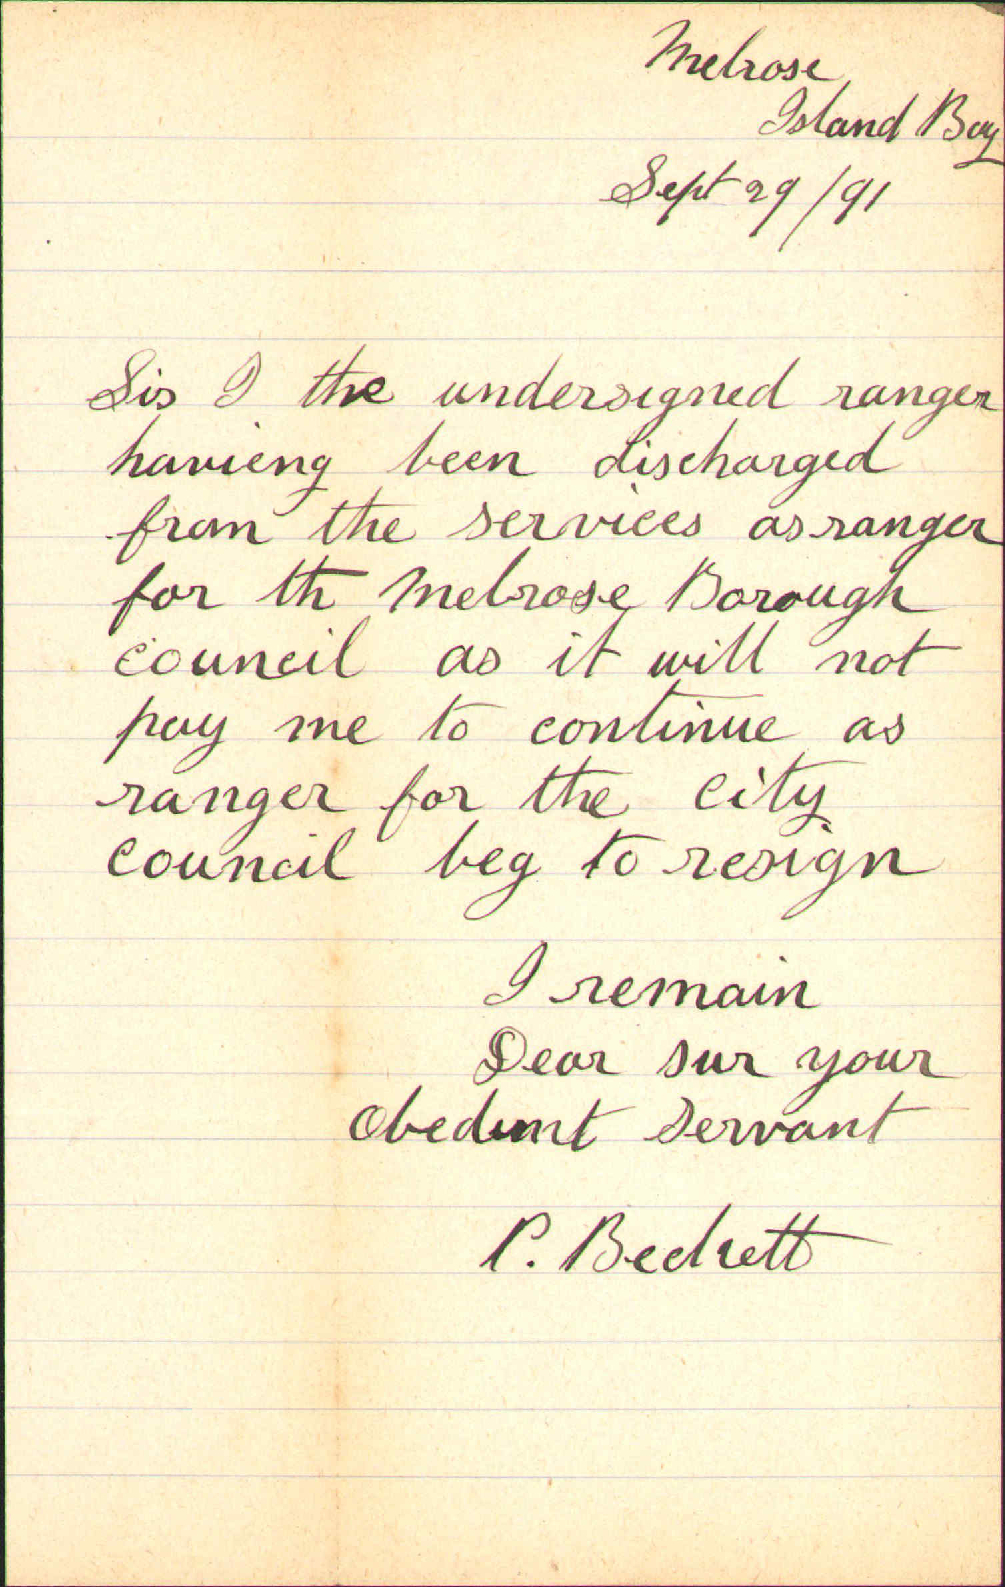 Melrose
Island Bay
Sept 29/91
Sir I the undersigned ranger
havieng been discharged
from the services as ranger
for th Melrose Borough
council as it will not
pay me to continue as
ranger for the city
council beg to resign
I remain
Dear sur your
obedunt servant
P. Beckett